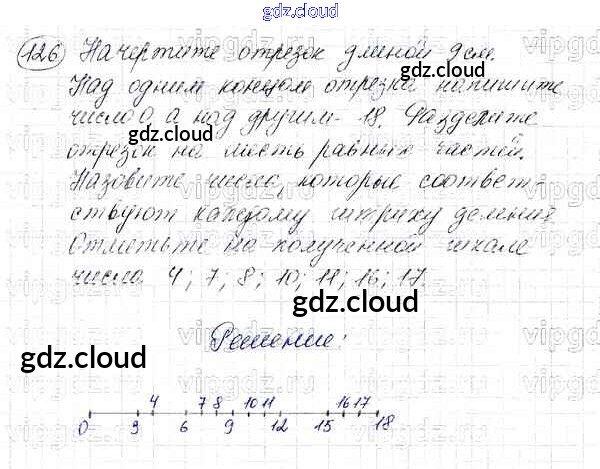 gdz.cloud
126 Начертите отрезок длиной 9см.
Над одним концом отрезка напишите
число 0, а над другим - 18. Разделите
отрезок на шесть равных частей.
Назовите числа, которые соответ-
ствуют каждому штриху деления.
Отметьте на полученной шкале
числа 4; 7; 8; 10; 11; 16; 17.
Решение:
4 7 8 10 11 16 17
0 3 6 9 12 15 18
gdz.cloud
gdz.cloud
gdz.cloud
gdz.cloud
gdz.cloud
gdz.cloud